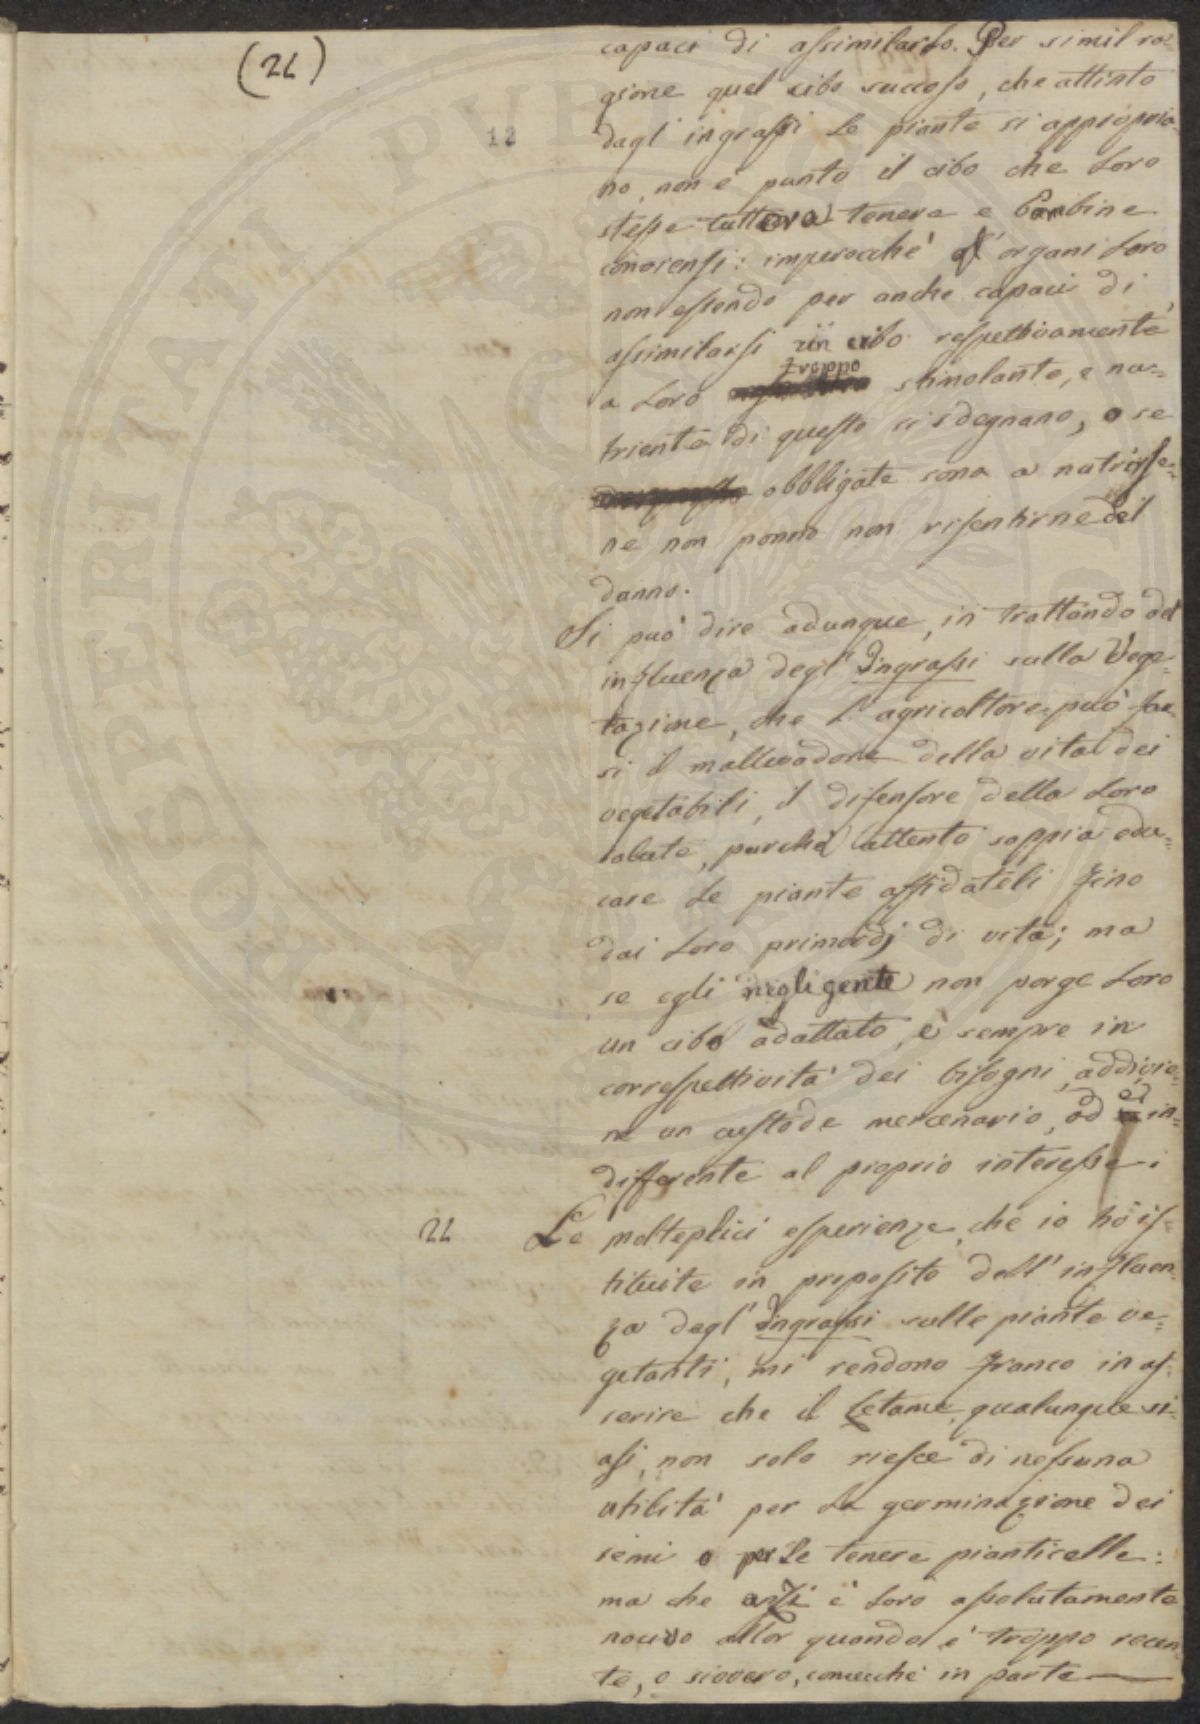 (22)
12
capaci di assimilarlo. Per simil ra-
gione quel cibo succoso, che attinto
dagl' ingrassi le piante si appropria-
no, non è punto il cibo che loro
stesse tuttora tenere e bambine
conviensi: imperocchè gl' organi loro
non essendo per anche capaci di
assimilarsi un cibo respettivamente
a loro troppo stimolante, e nu-
triente di questo si sdegnano, o se
obbligate sono a nutrirse-
ne non ponno non risentirne del
danno.
Si può dire adunque, in trattando del
influenza degl' Ingrassi sulla Vege-
tazione, che l' agricoltore può far
si il mallevadore della vita dei
vegetabili, il difensore della loro
salute, purchè attento sappia edu-
care le piante affidateli fino
dai loro primordj di vita; ma
se egli negligente non porge loro
un cibo adattato, e sempre in
correspettività dei bisogni, addivie-
ne un custode mercenario, od in-
differente al proprio interesse.
22 Le molteplici esperienze, che io hò is-
tituite in proposito dell' influen-
za degl' Ingrassi sulle piante ve-
getanti, mi rendono franco in as-
serire che il Letame, qualunque si-
asi, non solo riesce di nessuna
utilità per la germinazione dei
semi o per le tenere pianticelle:
ma che anzi è loro assolutamente
nocivo allor quando è troppo recen-
te, o sivvero, comecchè in parte